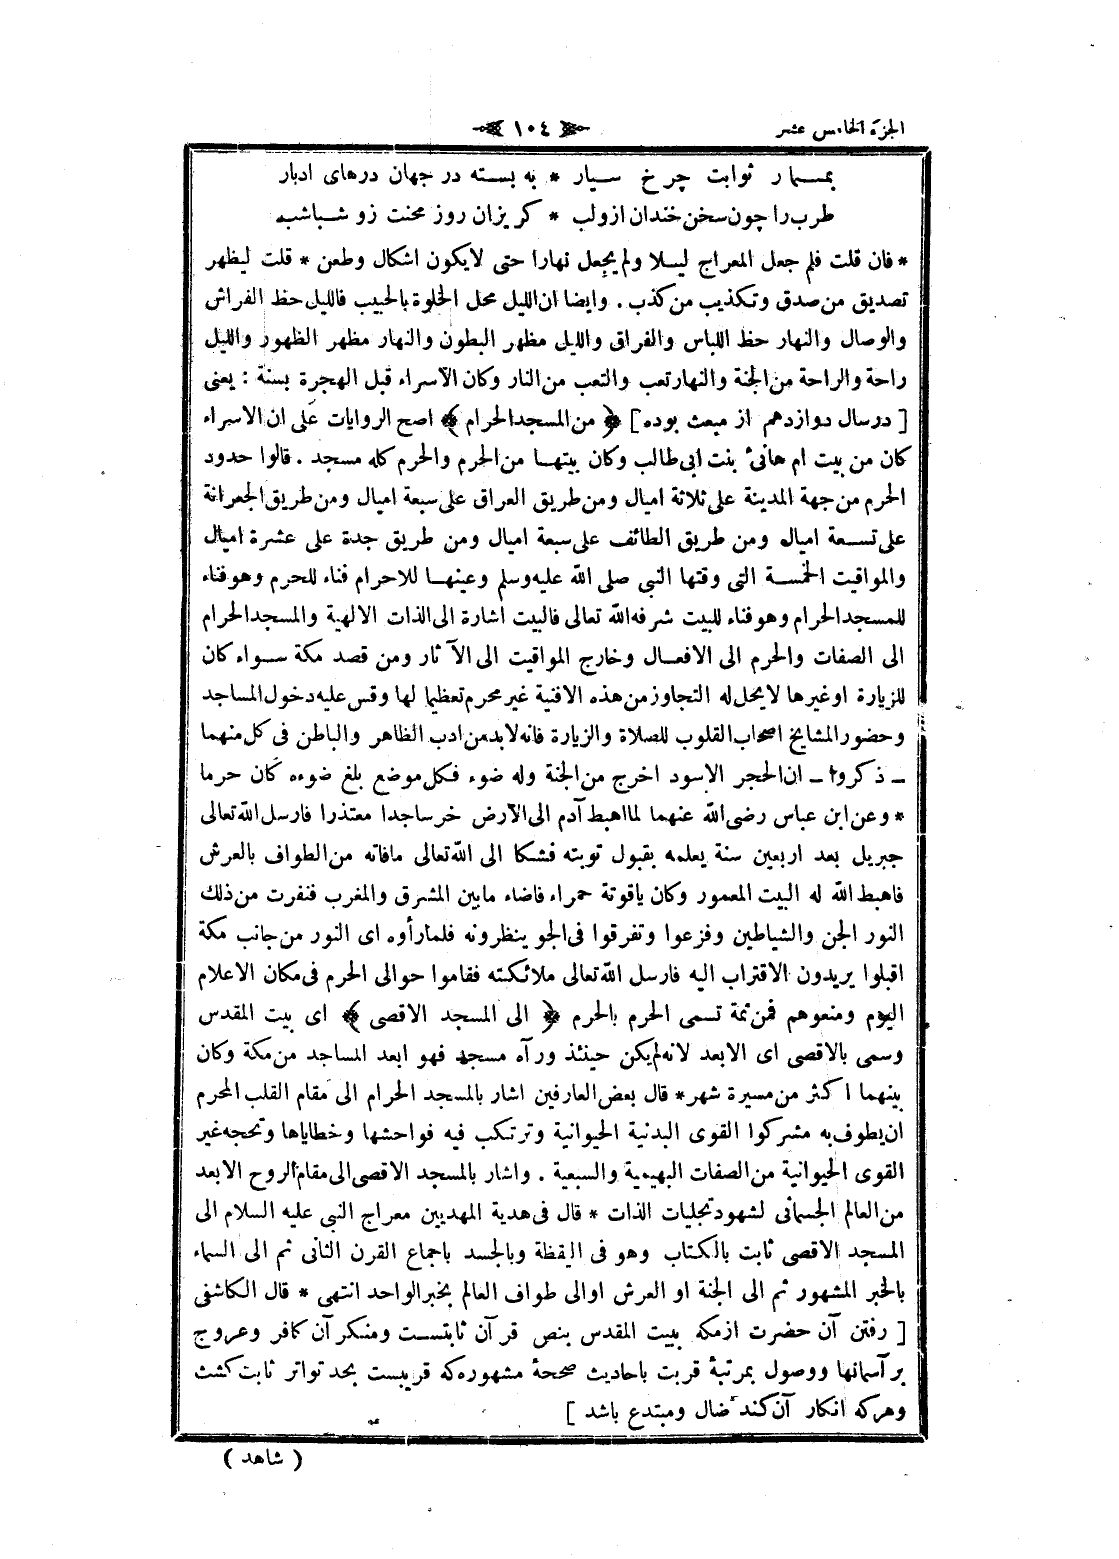 الجزء الخامس عشر
١٠٤
بمسمار ثوابت چرخ سيار * به بسته در جهان درهاى ادبار
طرب را چون سخن خندان ازولب * كريزان روز محنت زو شباشب
* فان قلت فلم جعل المعراج ليلا ولم يجعل نهارا حتى لايكون اشكال وطعن * قلت ليظهر
تصديق من صدق وتكذيب من كذب . وايضا ان الليل محل الخلوة بالحبيب فالليل حظ الفراش
والوصال والنهار حظ اللباس والفراق والليل مظهر البطون والنهار مظهر الظهور والليل
راحة والراحة من الجنة والنهار تعب والتعب من النار وكان الاسراء قبل الهجرة بسنة : يعنى
[ درسال دوازدهم از مبعث بوده ] ﴿ من المسجد الحرام ﴾ اصح الروايات على ان الاسراء
كان من بيت ام هانئ بنت ابى طالب وكان بيتها من الحرم والحرم كله مسجد . قالوا حدود
الحرم من جهة المدينة على ثلاثة اميال ومن طريق العراق على سبعة اميال ومن طريق الجعرانة
على تسعة اميال ومن طريق الطائف على سبعة اميال ومن طريق جدة على عشرة اميال
والمواقيت الخمسة التى وقتها النبى صلى الله عليه وسلم وعينها للاحرام فناء للحرم وهو فناء
للمسجد الحرام وهو فناء للبيت شرفه الله تعالى فالبيت اشارة الى الذات الالهية والمسجد الحرام
الى الصفات والحرم الى الافعال وخارج المواقيت الى الآثار ومن قصد مكة سواء كان
للزيارة اوغيرها لايحل له التجاوز من هذه الافنية غير محرم تعظيما لها وقس عليه دخول المساجد
وحضور المشايخ اصحاب القلوب للصلاة والزيارة فانه لابد من ادب الظاهر والباطن فى كل منهما
ـ ذكروا ـ ان الحجر الاسود اخرج من الجنة وله ضوء فكل موضع بلغ ضوءه كان حرما
* وعن ابن عباس رضى الله عنهما لما اهبط آدم الى الارض خر ساجدا معتذرا فارسل الله تعالى
جبريل بعد اربعين سنة يعلمه بقبول توبته فشكا الى الله تعالى مافاته من الطواف بالعرش
فاهبط الله له البيت المعمور وكان ياقوتة حمراء فاضاء مابين المشرق والمغرب فنفرت من ذلك
النور الجن والشياطين وفزعوا وتفرقوا فى الجو ينظرونه فلما رأوه اى النور من جانب مكة
اقبلوا يريدون الاقتراب اليه فارسل الله تعالى ملائكته فقاموا حوالى الحرم فى مكان الاعلام
اليوم ومنعوهم فمن ثمة تسمى الحرم بالحرم ﴿ الى المسجد الاقصى ﴾ اى بيت المقدس
وسمى بالاقصى اى الابعد لانه لم يكن حينئذ ورآه مسجد فهو ابعد المساجد من مكة وكان
بينهما اكثر من مسيرة شهر * قال بعض العارفين اشار بالمسجد الحرام الى مقام القلب المحرم
ان يطوف به مشركوا القوى البدنية الحيوانية وترتكب فيه فواحشها وخطاياها وتحجه غير
القوى الحيوانية من الصفات البهيمية والسبعية . واشار بالمسجد الاقصى الى مقام الروح الابعد
من العالم الجسمانى لشهود تجليات الذات * قال فى هدية المهديين معراج النبى عليه السلام الى
المسجد الاقصى ثابت بالكتاب وهو فى اليقظة وبالجسد باجماع القرن الثانى ثم الى السماء
بالخبر المشهور ثم الى الجنة او العرش اوالى طواف العالم بخبر الواحد انتهى * قال الكاشفى
[ رفتن آن حضرت ازمكه ببيت المقدس بنص قرآن ثابتست ومنكر آن كافر وعروج
بر آسمانها ووصول بمرتبۀ قربت باحاديث صحيحۀ مشهوره كه قريبست بحد تواتر ثابت كشت
وهركه انكار آن كند ضال ومبتدع باشد ]
( شاهد )